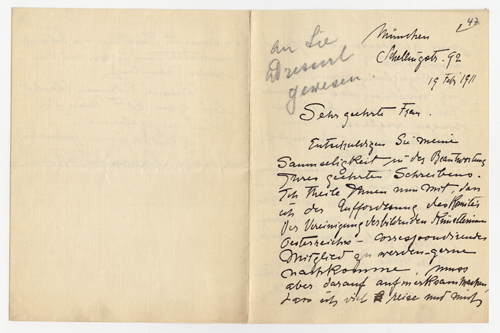 47
an Sie
adressirt
gewesen.
München
Schellingstr. 92
19 Febr 1911
Sehr geehrte Frau.
Entschuldigen Sie meine
Saumseligkeit in der Beantwortung
Ihres geehrten Schreibens.
Ich theile Ihnen nun mit, dass
ich der Aufforderung des Komités
der Vereinigung der bildenden Künstlerinnen
Oesterreichs – correspondirendes
Mitglied zu werden – gerne
nachkomme, muss
aber darauf aufmerksam machen
dass ich viel reise und mich